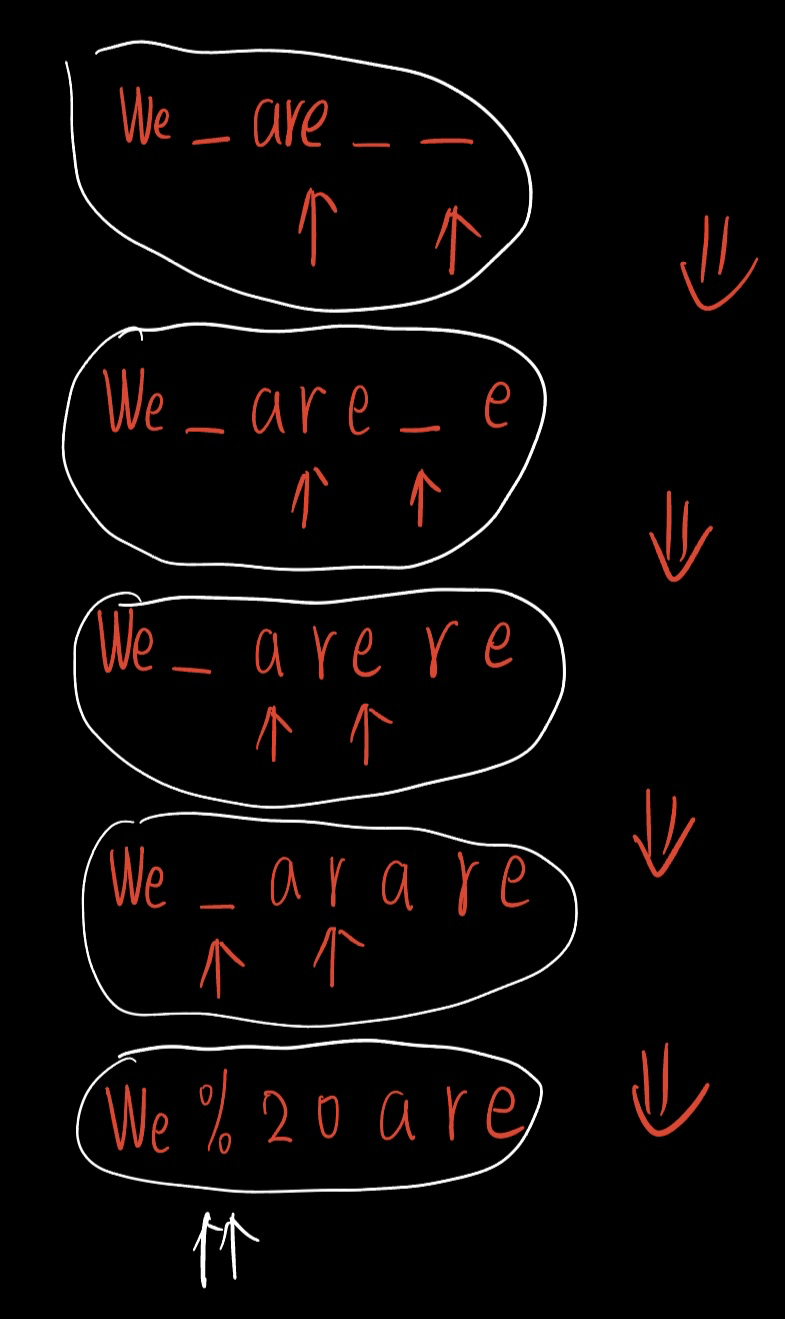 We _ are _ _
We _ a r e _ e
We _ a r e r e
We _ a r a r e
We % 2 0 a r e